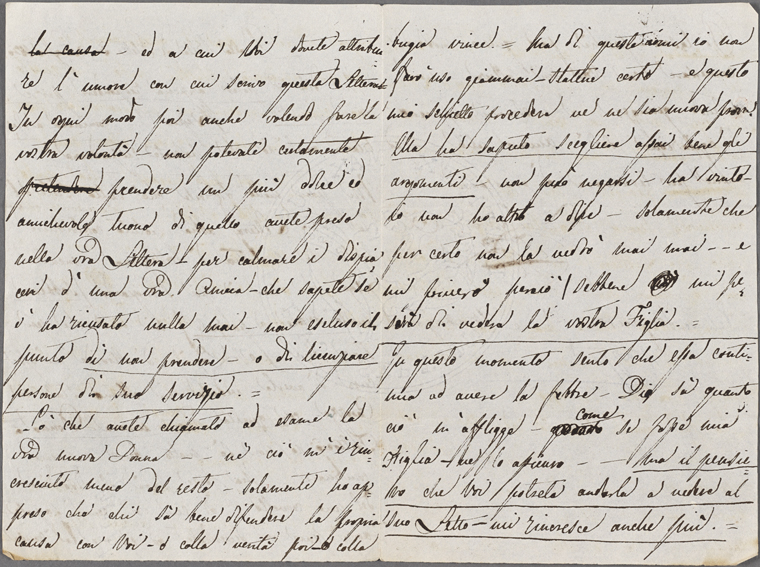 la causa - ed a cui Voi dovete attribui-
re l'umore con cui scrivo questa Lettera -
In ogni modo poi anche volendo fare la
vostra volontà - non potevate certamente
pretendere prendere un più dolce ed
amichevole tuono di quello avete preso
nella vra Lettera - per calmare i dispia
ceri d'una vra Amica - che sapete se
v'ha ricusato nulla mai - non escluso il
punto di non prendere - o di licenziare
persone di suo servizio. =
Sò che avete chiamato ad esame la
vra nuova Donna - - nè ciò m'è rin-
cresciuto meno del resto - solamente ho ap-
preso che chi sà bene difendere la propria
causa con Voi - o colla verità poi - o colla
bugia vince. = Ma di queste armi io non
farò uso giammai - statene certo - e questo
mio schietto procedere ve ne sia nuova prova.
Ella ha saputo scegliere assai bene gli
argomenti - non può negarsi - ha vinto -
io non ho altro a dire - solamente che
per certo non la vedrò mai mai - - e
mi priverò perciò / sebbene mi pe-
serà di vedere la vostra Figlia. =
In questo momento sento che essa conti-
nua ad avere la febbre - Dio sà quanto
ciò m'affligge - come se fosse mia
Figlia - ve lo assicuro - - ma il pensie-
ro che Voi potrete andarla a vedere al
suo Letto - mi rincresce anche più. =